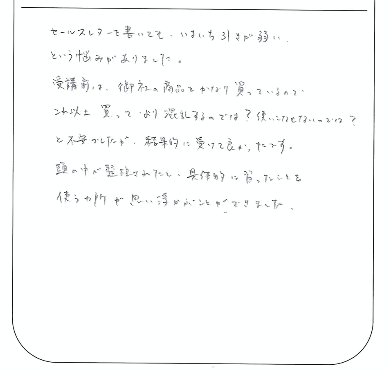 セールスレターを書いても、いまいち引きが弱い、
という悩みがありました。
受講前は、御社の商品をかなり買っているので
これ以上買って、より混乱するのでは?使いこなせないのでは?
と不安でしたが、結果的に受けて良かったです。
頭の中が整理されたし、具体的に習ったことを
使う箇所が思い浮かぶことができました。